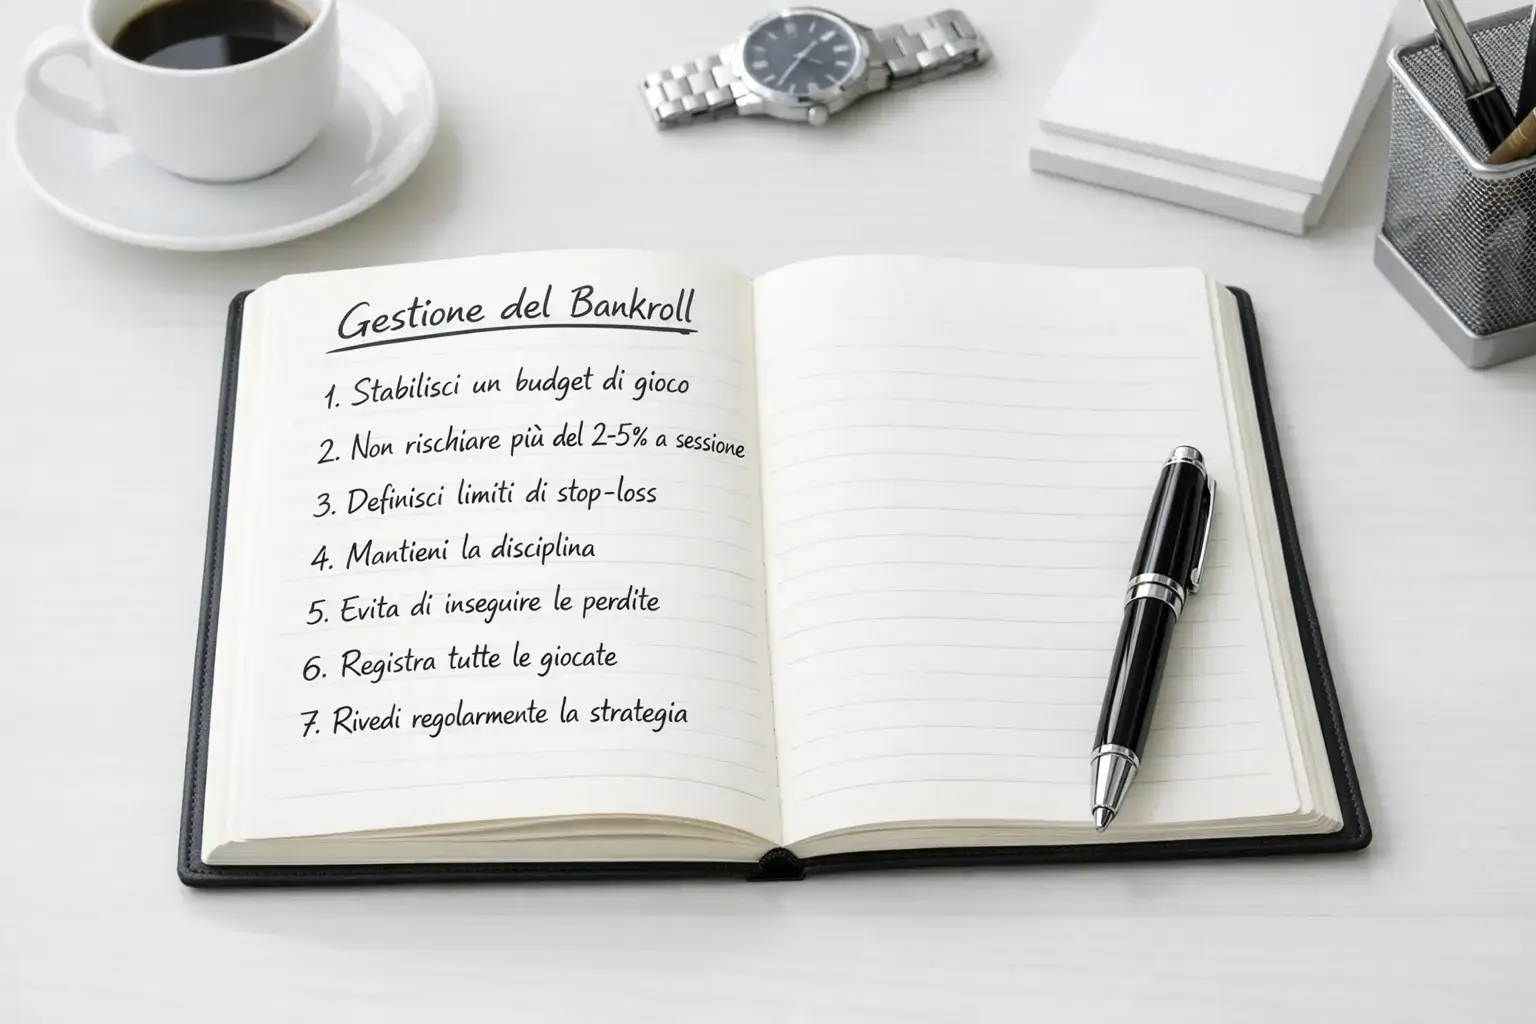 Gestione del Bankroll
1. Stabilisci un budget di gioco
2. Non rischiare più del 2-5% a sessione
3. Definisci limiti di stop-loss
4. Mantieni la disciplina
5. Evita di inseguire le perdite
6. Registra tutte le giocate
7. Rivedi regolarmente la strategia